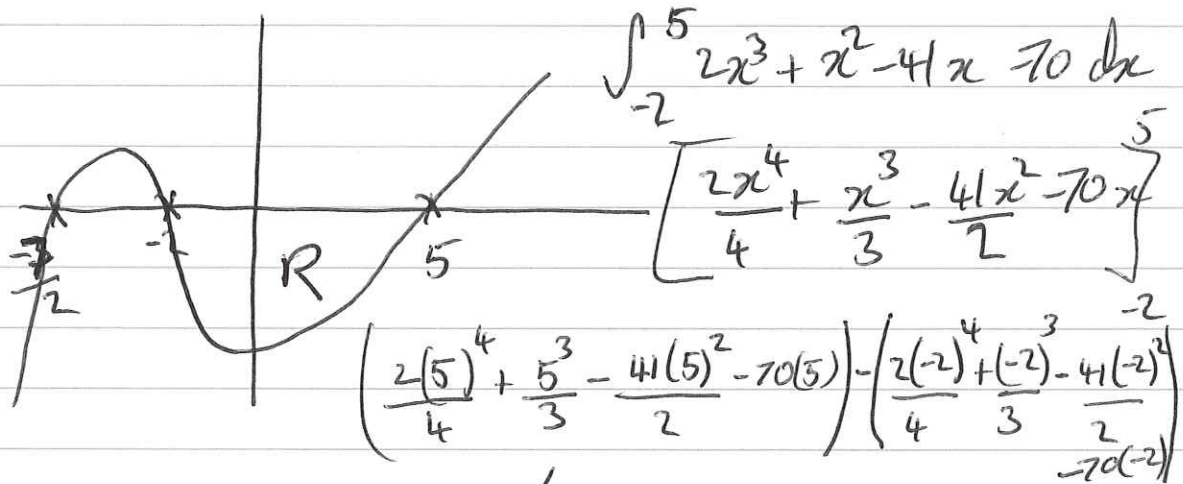 ∫_{-2}^{5} 2x³ + x² - 41x - 70 dx
[2x⁴/4 + x³/3 - 41x²/2 - 70x]_{-2}^{5}
-7/2 -2 R 5
(2(5)⁴/4 + 5³/3 - 41(5)²/2 - 70(5)) - (2(-2)⁴/4 + (-2)³/3 - 41(-2)²/2 - 70(-2))